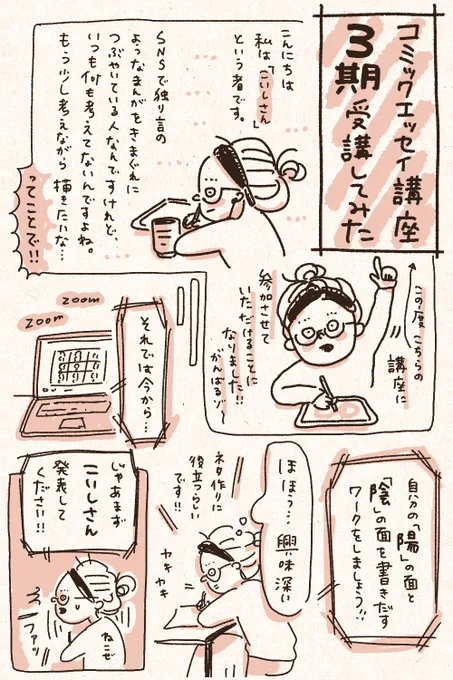 コミックエッセイ講座
3期
受講してみた
こんにちは
私は「こいしさん」
という者です。
SNSで独り言の
ようなまんがをきまぐれに
つぶやいている人なんですけれど、
いつも何も考えてないんですよね。
もう少し考えながら描きたいな…
ってことで!!
この度こちらの
講座に
参加させて
いただけることに
なりました!!
がんばるゾー
zoom
zoom
それでは今から…
自分の「陽」の面と
「陰」の面を書きだす
ワークをしましょう!!
ほほぅ…興味深い
ネタ作りに
役立つらしい
です!!
ヤキヤキ
じゃあまず
こいしさん
発表して
ください!!
ファッ
ねこぜ